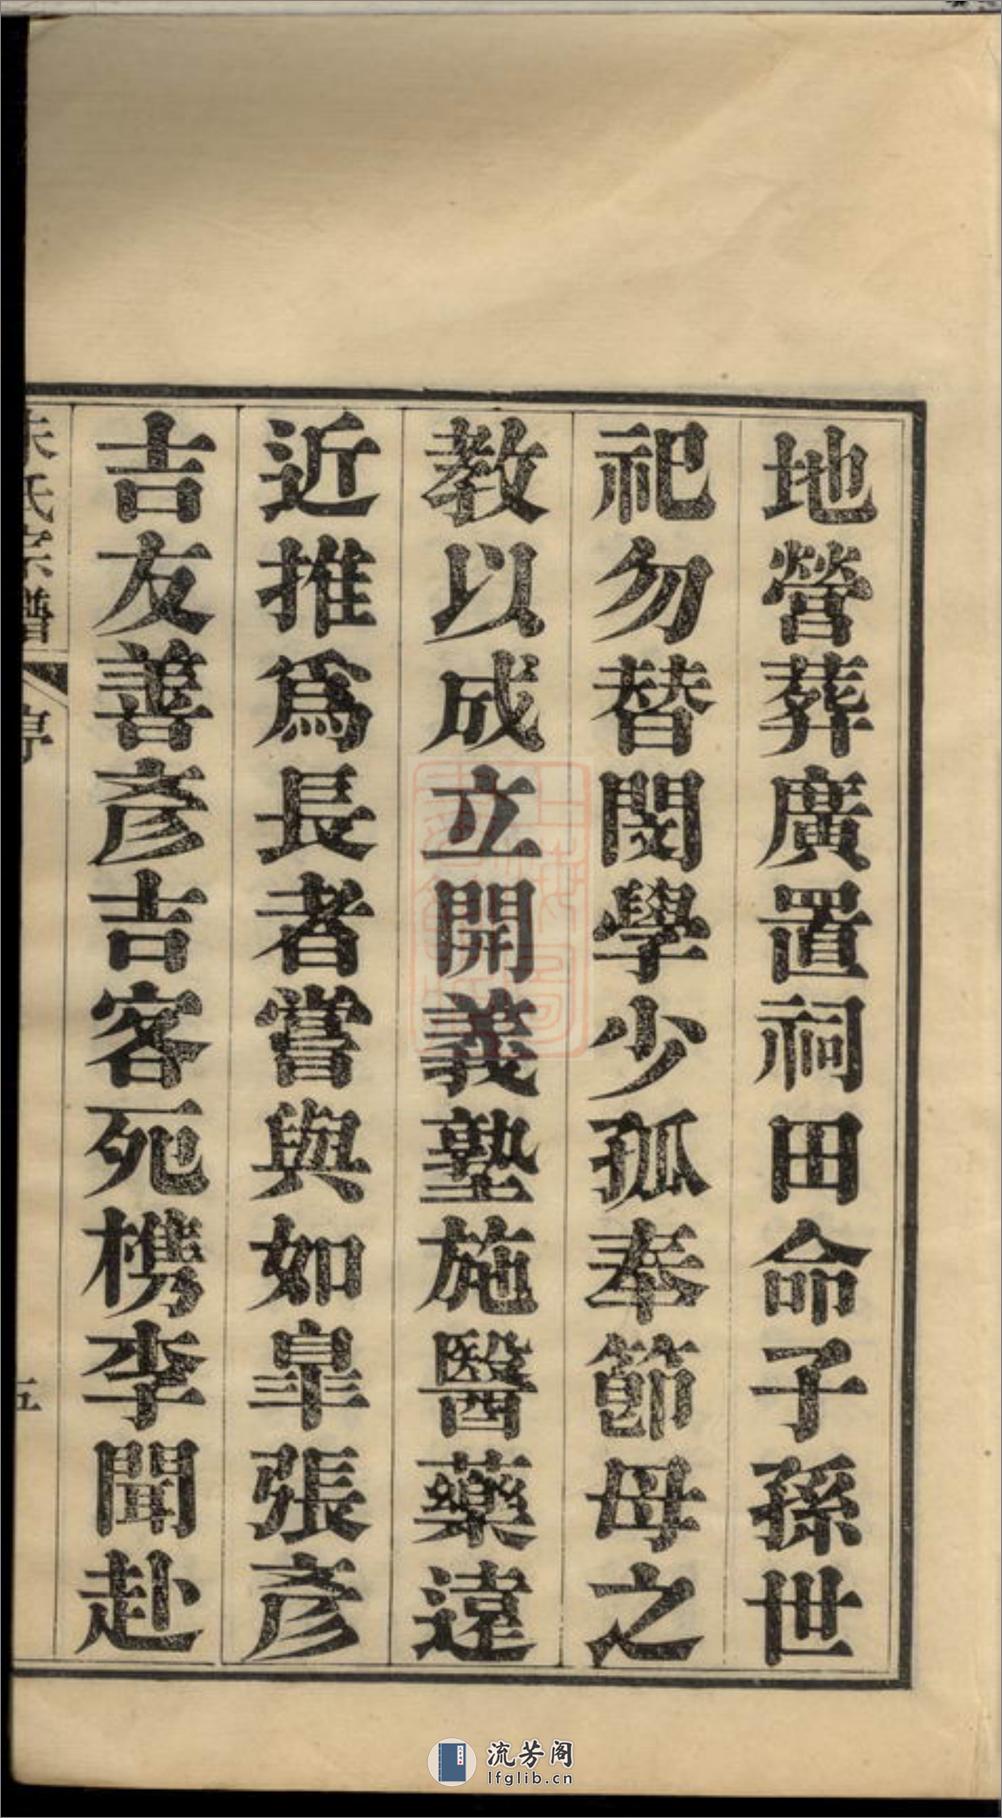 地營葬廣置祠田命子孫世
祀勿替閔學少孤奉節母之
教以成立開義塾施醫藥遠
近推爲長者嘗與如皋張彥
吉友善彥吉客死檇李聞赴
氏宗譜
序
五
流芳阁
lfglib.cn